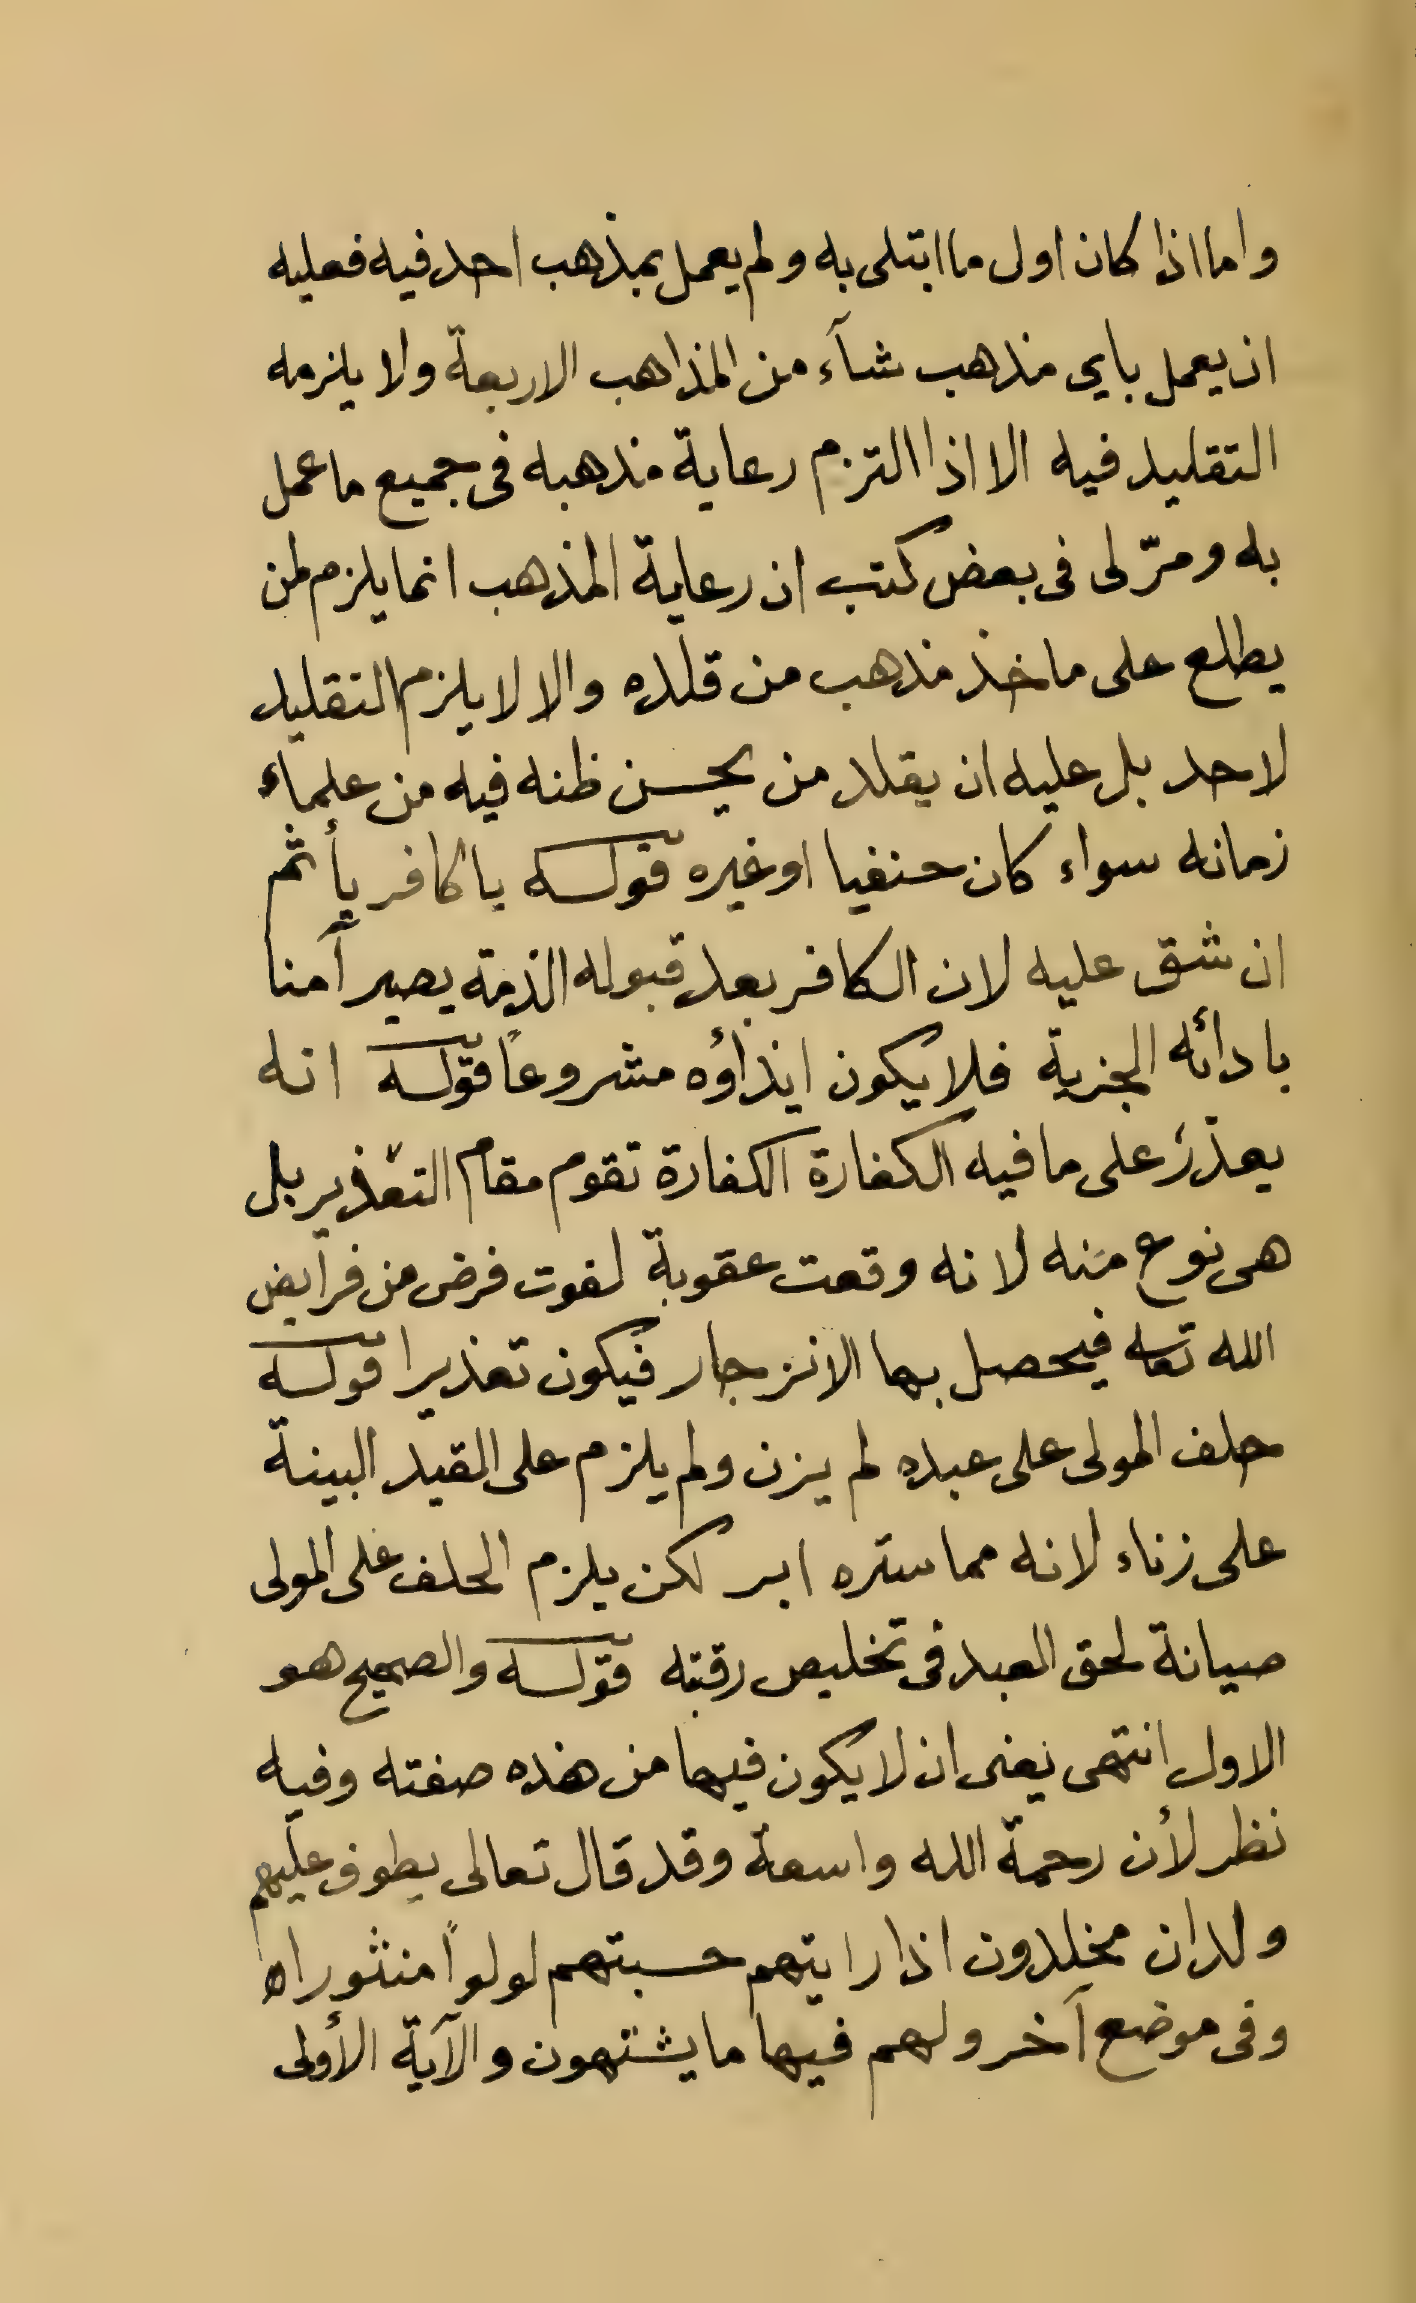 واما اذا كان اول ما ابتلى به ولم يعمل بمذهب احد فيه فعليه
ان يعمل باي مذهب شآء من المذاهب الاربعة ولا يلزمه
التقليد فيه الا اذا التزم رعاية مذهبه فى جميع ما عمل
به ومرّ لى فى بعض كتب ان رعاية المذهب انما يلزم لمن
يطلع على ماخذ مذهب من قلّده والا لا يلزم التقليد
لاحد بل عليه ان يقلد من يحسن ظنه فيه من علماء
زمانه سواء كان حنفيا او غيره قوله يا كافر يأثم
ان شق عليه لان الكافر بعد قبوله الذمة يصير آمنا
بادائه الجزية فلا يكون ايذاؤه مشروعاً قوله انه
يعذّر على ما فيه الكفارة الكفارة تقوم مقام التعذير بل
هى نوع منه لانه وقعت عقوبة لفوت فرض من فرايض
الله تعا فيحصل بها الانزجار فيكون تعذيرا قوله
حلف المولى على عبده لم يزن ولم يلزم على القيد البينة
على زناء لانه مما ستره ابر لكن يلزم الحلف على المولى
صيانة لحق العبد فى تخليص رقبته قوله والصحيح هو
الاول انتهى يعنى ان لا يكون فيها من هذه صفته وفيه
نظر لأن رحمة الله واسعة وقد قال تعالى يطوف عليهم
ولدان مخلدون اذا رايتهم حسبتهم لولواً منثورا ه
وفى موضع آخر ولهم فيها ما يشتهون والآية الأولى